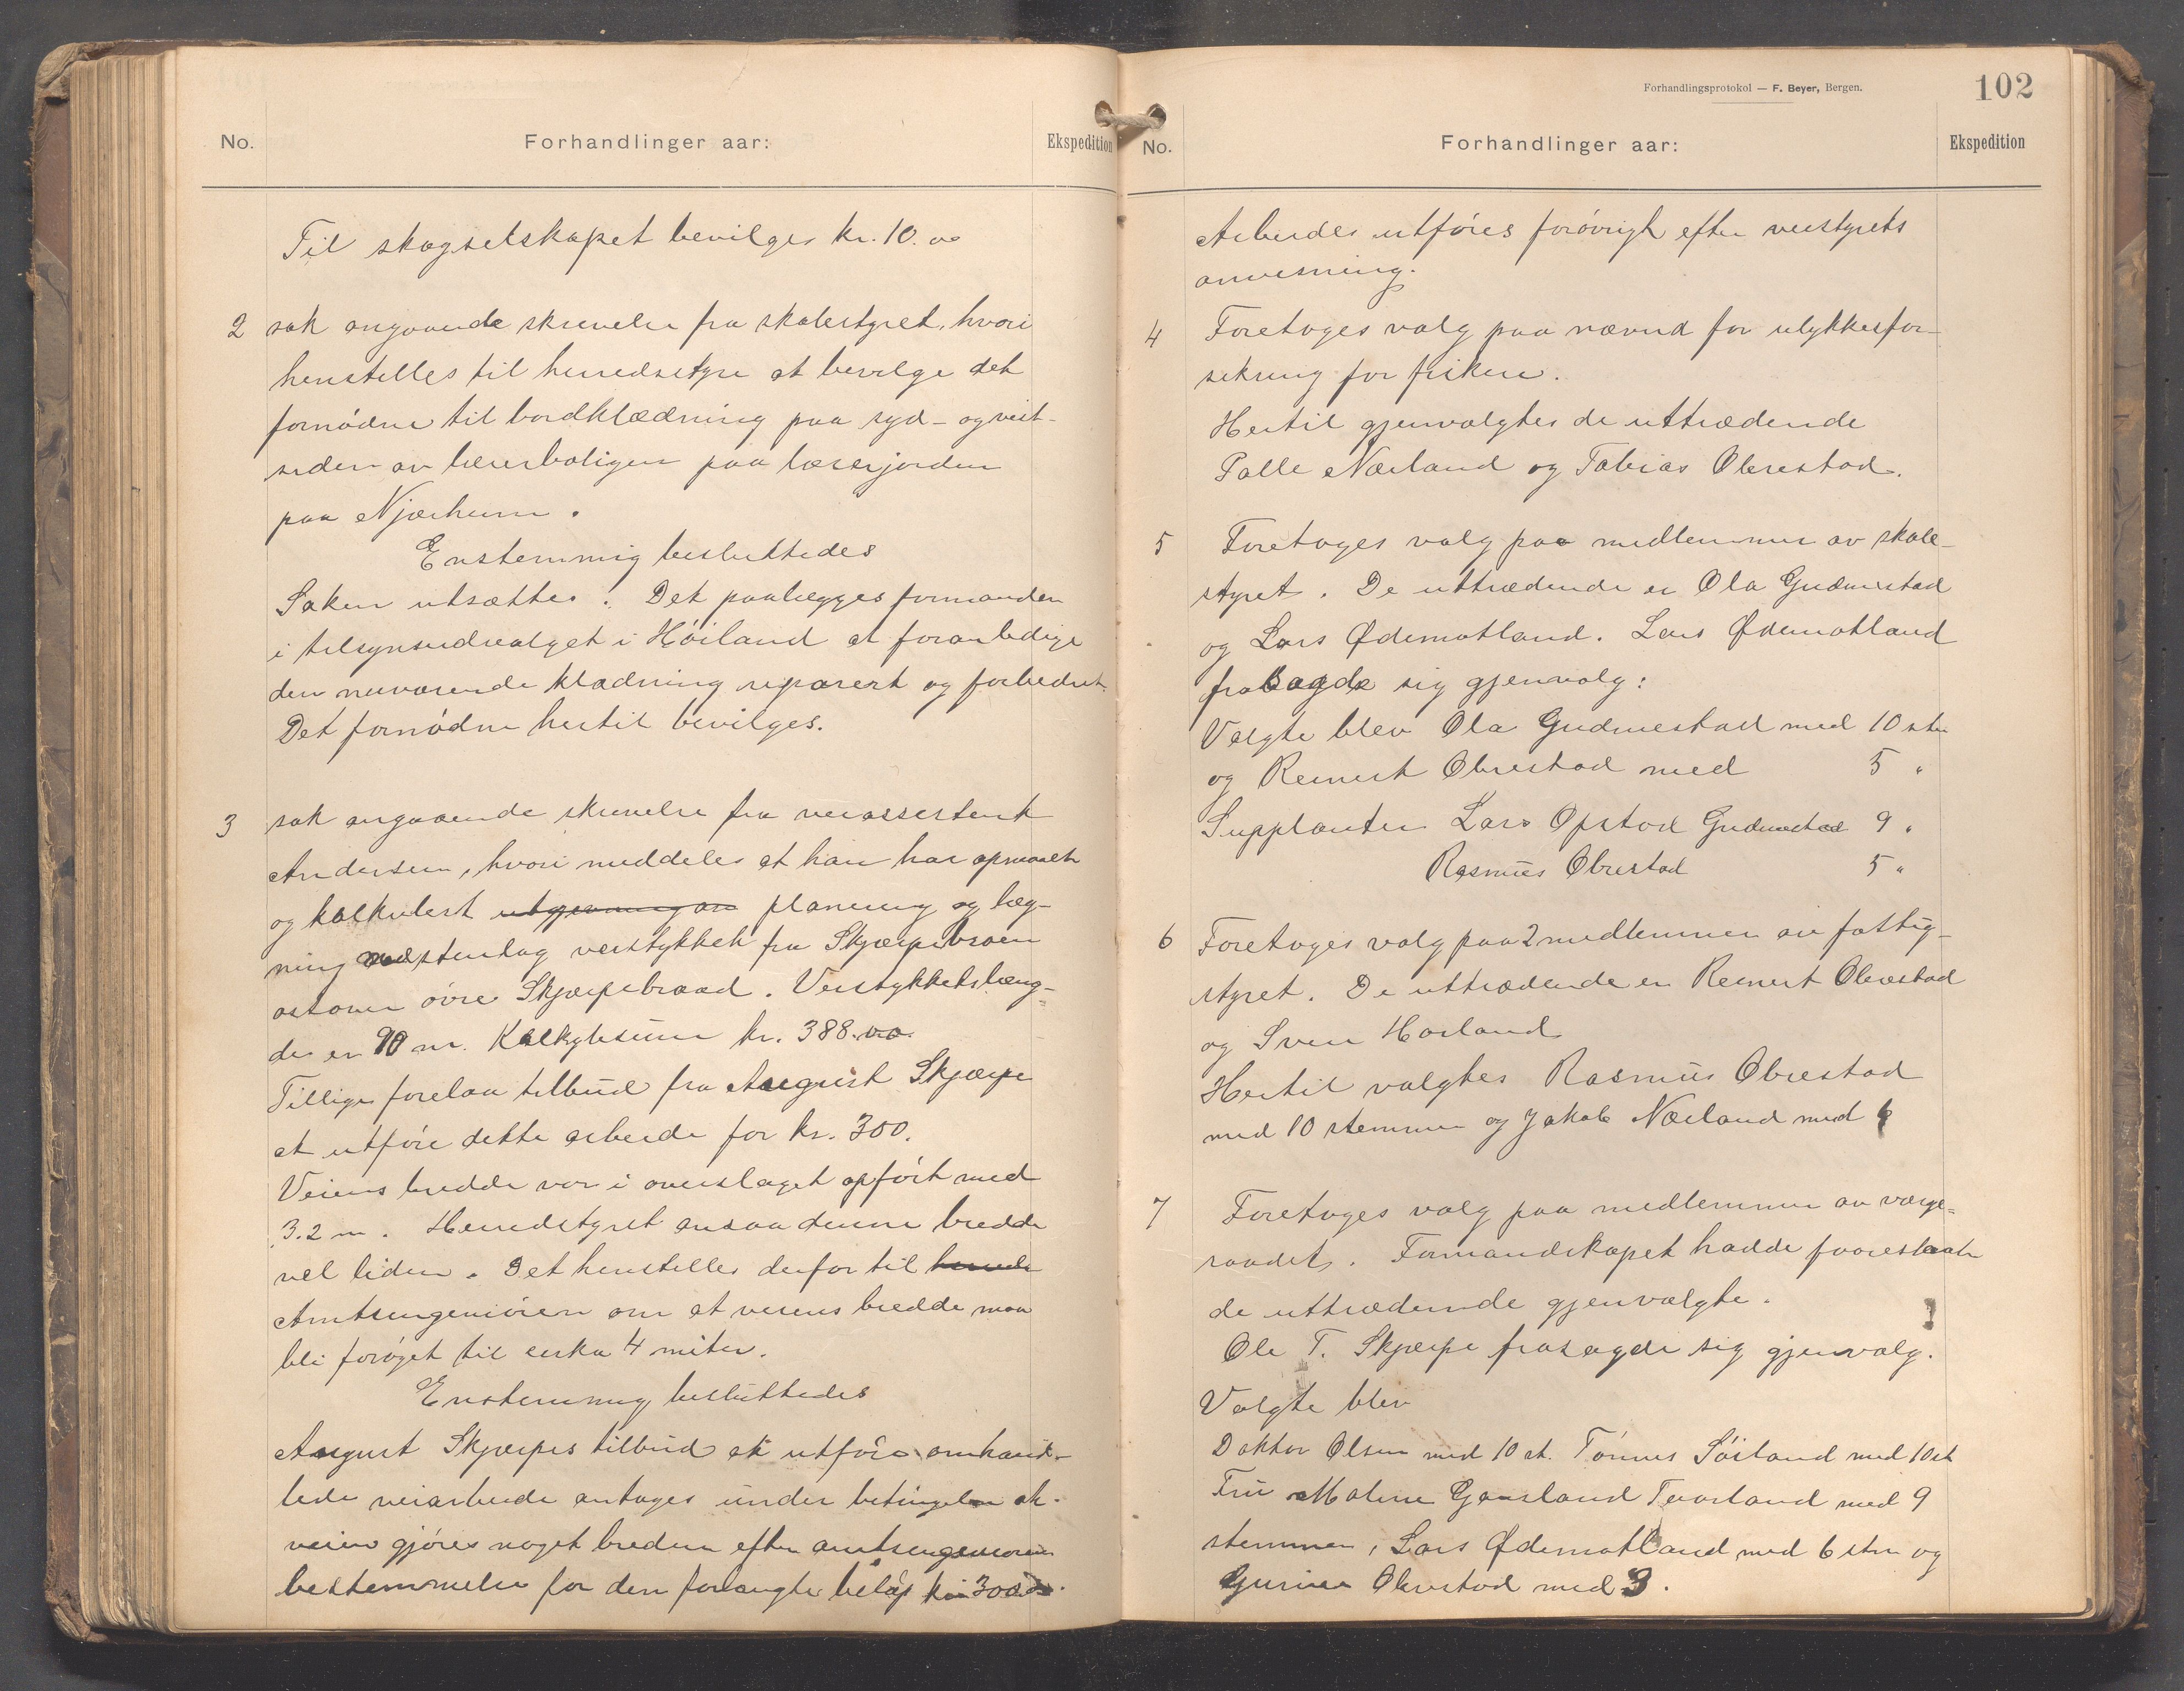 No.
Forhandlinger aar:
Ekspedition
Til skogselskapet bevilges kr. 10.00
2 sak angaaende skrivelse fra skolestyret, hvori
henstilles til herredsstyre at bevilge det
fornødne til bordklædning paa syd- og vest-
siden av lærerboligen paa lærerjorden
paa Njærheim.
Enstemmig besluttedes
Saken utsættes. Det paalægges formanden
i tilsynsudvalget i Höiland at foranledige
den nuværende klædning reparert og forbedret.
Det fornødne hertil bevilges.
3 sak angaaende skrivelse fra veiassistent
Andersen, hvori meddeles at han har opmaalt
og kalkulert utgjevning av planering og læg-
ning stenlag veistykket fra Skjærpebroen
østover övre Skjærpebraad. Veistykkets læng-
de er 90 m. Kalkylesum kr. 388.00.
Tillige forelaa tilbud fra August Skjærpe
at utföre dette arbeide for kr. 300.
Veiens bredde var i overslaget opfört med
3.2 m. Herredstyret ansaa denne bredde
vel liden. Det henstilles derfor til herreds
Amtsingeniören om at veiens bredde maa
bli foröget til cirka 4 meter.
Enstemmig besluttedes
August Skjærpes tilbud at utföre omhand-
lede veiarbeide antages under betingelse at
veien gjöres noget bredere efter amtsingeniörens
bestemmelse for den forlangte belöp kr 300.00.
Forhandlingsprotokol — F. Beyer, Bergen.
102
No.
Forhandlinger aar:
Ekspedition
Arbeidet utföres forövrigt efter veistyrets
anvisning.
4 Foretoges valg paa nævnd for ulykkesfor-
sikring for fiskere.
Hertil gjenvalgtes de uttrædende
Palle Nærland og Tobias Obrestad.
5 Foretoges valg paa medlemmer av skole-
styret. De uttrædende er Ola Gudmestad
og Lars Ødemotland. Lars Ødemotland
frasagde sig gjenvalg:
Valgte blev Ola Gudmestad med 10 stm
og Reinert Obrestad med 5 "
Supplanter Lars Opstad Gudmestad 9 "
Rasmus Obrestad 5 "
6 Foretoges valg paa 2 medlemmer av fattig-
styret. De uttrædende er Reinert Obrestad
og Sven Horland
Hertil valgtes Rasmus Obrestad
med 10 stemmer og Jakob Nærland med 6
7 Foretoges valg paa medlemmer av værge-
raadet. Formandskapet hadde foreslaat
de uttrædende gjenvalgte.
Ole T. Skjærpe frasagde sig gjenvalg.
Valgte blev
Doktor Olsen med 10 st. Tönnes Söiland med 10 st
Fru Malene Gausland Tvarland med 9
stemmer, Lars Ødemotland med 6 stm og
Gurine Obrestad med 3.